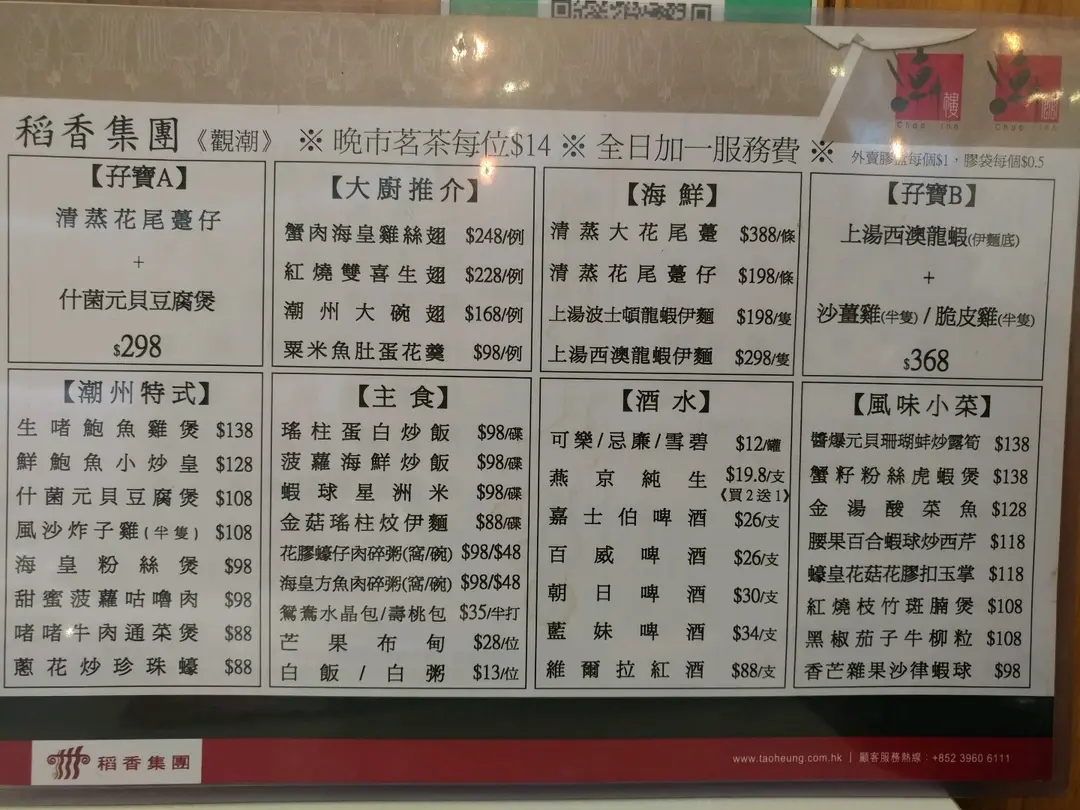 稻香集團《觀潮》 ※ 晚市茗茶每位$14 ※ 全日加一服務費 ※ 外賣膠盒每個$1，膠袋每個$0.5
【孖寶A】
清蒸花尾躉仔
+
什菌元貝豆腐煲
$298
【大廚推介】
蟹肉海皇雞絲翅 $248/例
紅燒雙喜生翅 $228/例
潮州大碗翅 $168/例
粟米魚肚蛋花羹 $98/例
【海鮮】
清蒸大花尾躉 $388/條
清蒸花尾躉仔 $198/條
上湯波士頓龍蝦伊麵 $198/隻
上湯西澳龍蝦伊麵 $298/隻
【孖寶B】
上湯西澳龍蝦(伊麵底)
+
沙薑雞(半隻) / 脆皮雞(半隻)
$368
【潮州特式】
生啫鮑魚雞煲 $138
鮮鮑魚小炒皇 $128
什菌元貝豆腐煲 $108
風沙炸子雞(半隻) $108
海皇粉絲煲 $98
甜蜜菠蘿咕嚕肉 $98
啫啫牛肉通菜煲 $88
蔥花炒珍珠蠔 $88
【主食】
瑤柱蛋白炒飯 $98/碟
菠蘿海鮮炒飯 $98/碟
蝦球星洲米 $98/碟
金菇瑤柱炆伊麵 $88/碟
花膠蠔仔肉碎粥(窩/碗) $98/$48
海皇方魚肉碎粥(窩/碗) $98/$48
鴛鴦水晶包/壽桃包 $35/半打
芒果布甸 $28/位
白飯/白粥 $13/位
【酒水】
可樂/忌廉/雪碧 $12/罐
燕京純生 $19.8/支
《買2送1》
嘉士伯啤酒 $26/支
百威啤酒 $26/支
朝日啤酒 $30/支
藍妹啤酒 $34/支
維爾拉紅酒 $88/支
【風味小菜】
醬爆元貝珊瑚蚌炒露筍 $138
蟹籽粉絲虎蝦煲 $138
金湯酸菜魚 $128
腰果百合蝦球炒西芹 $118
蠔皇花菇花膠扣玉掌 $118
紅燒枝竹斑腩煲 $108
黑椒茄子牛柳粒 $108
香芒雜果沙律蝦球 $98
稻香集團
www.taoheung.com.hk | 顧客服務熱線：+852 3960 6111